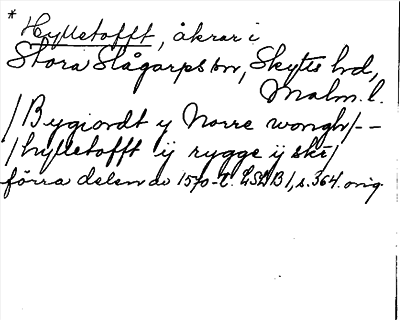 * Hylletofft, åkrar i
Stora Slågarps sn, Skytts hd,
Malm. l.
/Bygiordt y Norre wongh/--
/hylletofft ij rygge ij ske/
förra delen av 1570-t. LSDB I, s. 364. orig.